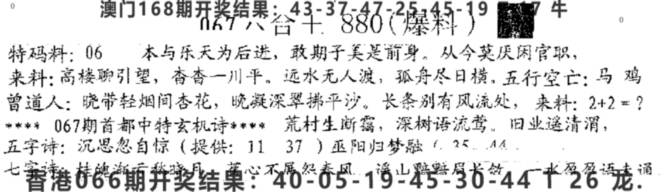 澳门168期开奖结果：43-37-47-25-45-19 17 牛
067六合王 880(爆料)
特码料：06 本与乐天为后进，敢期子美是前身。从今莫厌闲官职，
来料：高楼聊引望，杳杳一川平。远水无人渡，孤舟尽日横，五行空亡：马 鸡
曾道人：晓带轻烟间杏花，晚凝深翠拂平沙。长条别有风流处， 来料：2+2=？
**** 067期首都中特玄机诗**** 荒村生断霭，深树语流莺。旧业遥清渭，
五字诗：沉思忽自惊（提供：11 37）巫阳归梦融（ 35 44
七字诗：
香港066期开奖结果：40-05-19-45-30-44 T 26 龙.